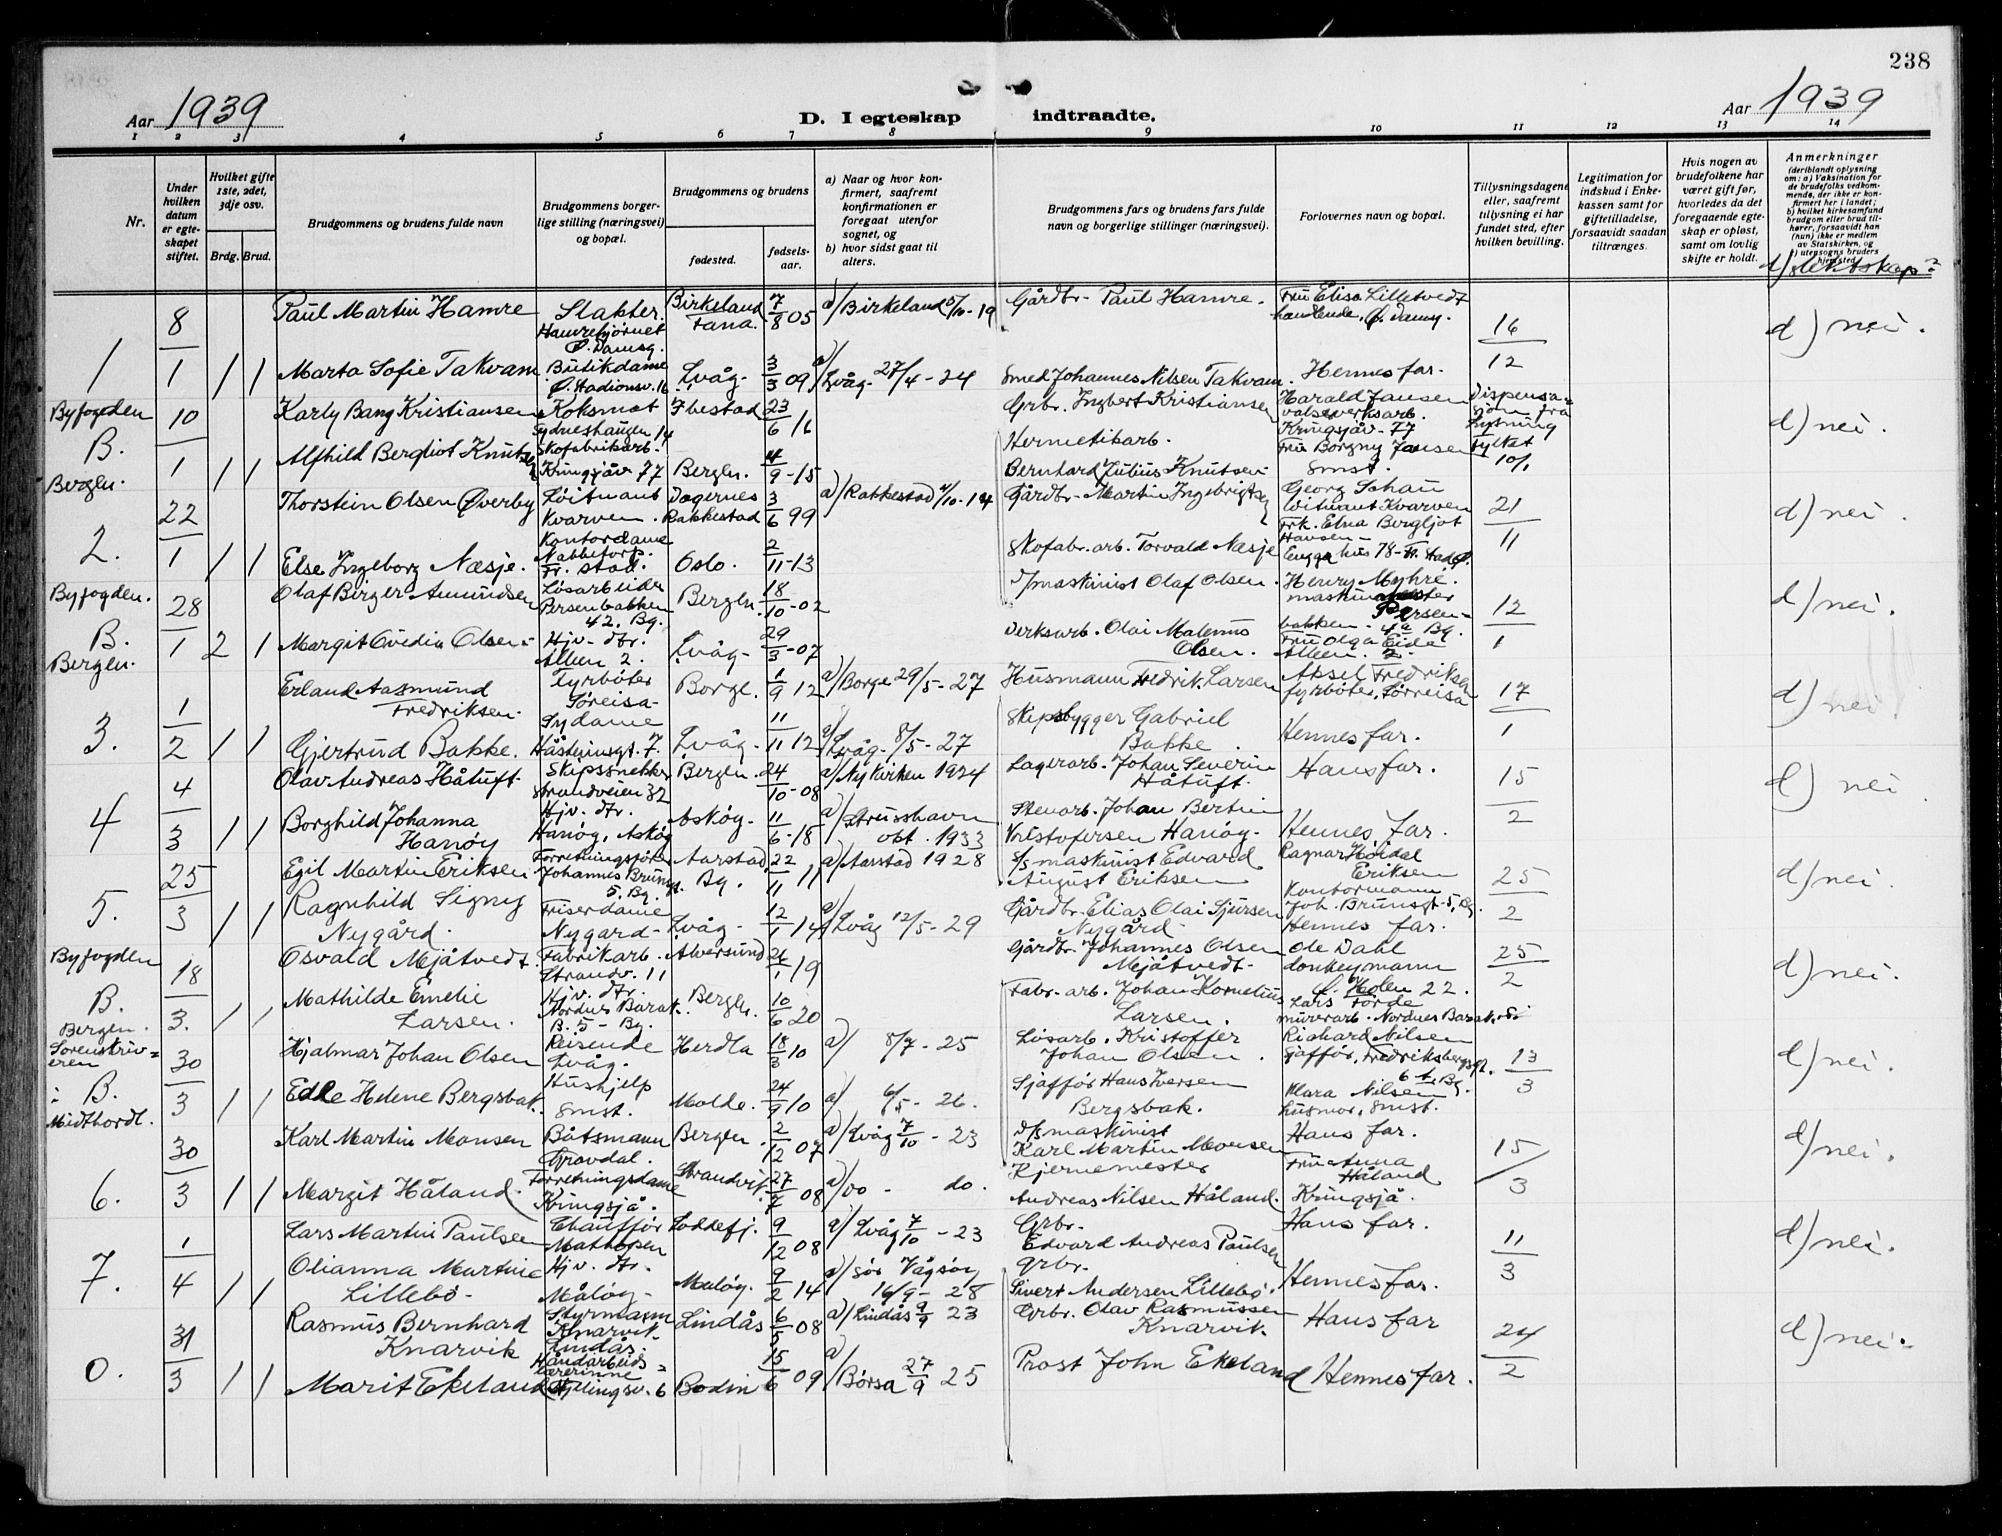 238
Aar 1939
D. I egteskap indtraadte.
Aar 1939
1 2 3 4 5 6 7 8 9 10 11 12 13 14
Nr.
Under hvilken datum er egteskapet stiftet.
Hvilket gifte 1ste, 2det, 3dje osv.
Brdg. Brud.
Brudgommens og brudens fulde navn
Brudgommens borgerlige stilling (næringsvei) og bopæl.
Brudgommens og brudens
fødested.
fødselsaar.
a) Naar og hvor konfirmert, saafremt konfirmationen er foregaat utenfor sognet, og
b) hvor sidst gaat til alters.
Brudgommens fars og brudens fars fulde navn og borgerlige stillinger (næringsvei).
Forlovernes navn og bopæl.
Tillysningsdagene eller, saafremt tillysning ei har fundet sted, efter hvilken bevilling.
Legitimation for indskud i Enkekassen samt for giftetilladelse, forsaavidt saadan tiltrænges.
Hvis nogen av brudefolkene har været gift før, hvorledes da det foregaaende egteskap er opløst, samt om lovlig skifte er holdt.
Anmerkninger
d/ slektskap?
1 8/1 1 1
Paul Martin Hamre Slakter. Hamrehjørnet Ø. Damsg. Birkeland Fana. 7/8 05 a/ Birkeland 5/10-19 Gårdbr. Paul Hamre. Fru Elisa Lilletvedt handlende, Ø. Damsg. 16/12 d) nei.
Marta Sofie Takvam Butikdame Ø. Stadionsv. 16 Lvåg. 3/3 09 a/ Lvåg. 27/4-24 Smed Johannes Nilsen Takvam. Hennes far.
Byfogden B. Bergen. 10/1 1 1
Karly Bang Kristiansen Koksmat Sydneshaugen 14 Ibestad 23/6 16 Grbr. Ingbert Kristiansen Harald Jansen valseverksarb. Kringsjåv. 77 Dispensasjon fra lysning Fylket 10/1 d) nei.
Alfhild Bergliot Knutsen Skofabrikarb. Kringsjåv 77 Bergen. 4/9-15 Hermetikarb. Bernhard Julius Knutsen Fru Borgny Jansen Smst.
2. 22/1 1 1
Thorstein Olsen Øverby Løitnant Kvarven. Degernes Rakkestad 3/6 99 a/ Rakkestad 4/10-14 Gårdbr. Martin Ingebrigtsen Georg Schau løitnant Kvarven 21/11 d) nei.
Else Ingeborg Næsje. Kontordame Nabbetorp. Fr. stad. Oslo. 2/11-13 Skofabr. arb. Torvald Næsje Frk. Elna Bergljot Hansen Enggahus 78-
Byfogden. B. Bergen. 28/1 2 1
Olaf Birger Amundsen Løsarbeider Persenbakken 42. Bg. Bergen. 18/10-02 D/ maskinist Olaf Olsen. Henry Myhre. maskinmester Persenbakken 4a Bg. 12/1 d) nei.
Margit Ovedia Olsen Hjv. dtr. Alleen 2. Lvåg- 29/3-07 Verksarb. Olai Malenus Olsen. Fru Olga Eide Alleen. 2.
3. 1/2 1 1
Erland Aasmund Fredriksen. Fyrbøter Søreisa- Borge. 1/9 12 a/ Borge 29/5-27 Husmann Fredrik Larsen Aksel Fredriksen fyrbøter, Sørreisa 17/1 d) nei.
Gjertrud Bakke. Sydame Håsteinsgt. 7. Lvåg- 11/11 12 a/ Lvåg. 8/5-27 Skipsbygger Gabriel Bakke. Hennes far.
4 4/3 1 1
Olav Andreas Håtuft. Skipssnekker Strandveien 32 Bergen. 24/10-08 a/ Nykirken 1924 Lagerarb. Johan Severin Håtuft. Hans far. 15/2 d) nei.
Borghild Johanna Hanøy Hjv. dtr. Hanøy, Askøy Askøy- 11/6-18 a/ Strusshavn okt. 1933 Stenarb. Johan Bertin Kristofersen Hanøy. Hennes far.
5. 25/3 1 1
Egil Martin Eriksen. Forretningssjåfør Johannes Brunsgt. 5. Bg. Aarstad Bg. 22/11 11 a/ Aarstad 1928 D/s maskinist Edvard August Eriksen Ragnar Høidal Eriksen Kontormann Joh. Brunsgt-5, Bg. 25/2 d) nei.
Ragnhild Signy Nygård. Friserdame Nygard- Lvåg- 12/1 14 a/ Lvåg 12/5-29 Gårdbr. Elias Olai Sjursen Nygård. Hennes far.
Byfogden B. Bergen. 18/3. 1 1
Osvald Mjåtvedt. Fabrikarb. Strandv. 11 Alversund 26/1 19 Gårdbr. Johannes Olsen Mjåtvedt. Ole Dahl donkeymann Ø. Holen 22. 25/2 d) nei.
Mathilde Emelie Larsen. Hjv. dtr. Nordnes Barak. B. 5- Bg. Bergen. 10/6 20 Fabr. arb. Johan Kornelius Larsen. Lars Førde murerarb. Nordnes Barak.
Sorenskriveren i B. Midthordl. 30/3 1 1
Hjalmar Johan Olsen Reisende Lvåg. Herdla 18/3 10 a/ 8/7-25 Løsarb. Kristoffer Johan Olsen. Richard Nilsen sjåffør, Fredriksbergsgt. 6 Bg. 13/3 d) nei.
Edle Helene Bergsbak. Hushjelp Smst. Molde. 24/9 10 a/ 6/5-26. Sjåffør Hans Iversen Bergsbak. Klara Nilsen husmor, Smst.
6. 30/3 1 1
Karl Martin Monsen Båtsmann Gravdal. Bergen. 2/12 07 a/ Lvåg 7/10-23 D/s maskinist Karl Martin Monsen Hans far. 15/3 d) nei.
Margit Håland. Forretningsdame Kringsjå. Strandvik. 27/7 08 a/ do- do. Kjernemester Andreas Nilsen Håland. Fru Anna Håland Kringsjå.
7. 1/4 1 1
Lars Martin Paulsen Chauffør Mathopen Loddefj. 9/12 08 a/ Lvåg 7/10-23 Grbr. Edvard Andreas Paulsen Hans far. 11/3 d) nei.
Olianna Martine Lillebø- Hjv. dtr. Måløy- Måløy. 9/2 14 a/ Sør Vågsøy 16/9-28 Grbr. Sivert Andersen Lillebø. Hennes far.
0. 31/3 1 1
Rasmus Bernhard Knarvik Styrmann Knarvik. Lindås. Lindås 6/5 08 a/ Lindås 9/9 23 Grbr. Olav Rasmussen Knarvik. Hans far 24/2 d) nei.
Marit Ekeland Håndarbeidslærerinne 6 Bodin 15/6 09 a/ Børsa 27/9 25 Prost John Ekeland Hennes far.